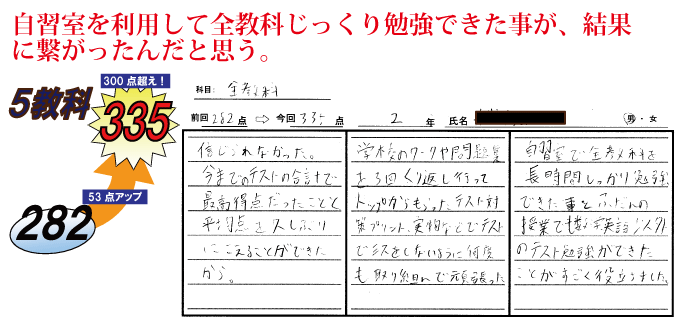 自習室を利用して全教科じっくり勉強できた事が、結果
に繋がったんだと思う。
300点超え！
5教科
335
53点アップ
282
科目: 全教科
前回 282 点 ⇨ 今回 335 点 2 年 氏名 男・女
信じられなかった。
今までのテストの合計で
最高得点だったことと
平均点を久しぶり
にこえることができた
から。
学校のワークや問題集
を3回くり返し行って
トップからもらったテスト対
策プリント、実物などでテスト
でミスをしないように何度
も取り組んで頑張った
自習室で全教科を
長時間しっかり勉強
できた事とふだんの
授業でも数学英語以外
のテスト勉強ができた
ことがすごく役立ちました。